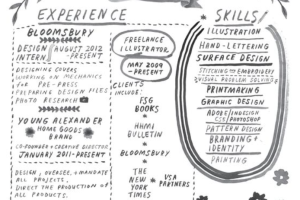 EXPERIENCE
BLOOMSBURY
DESIGN INTERN
AUGUST 2012 - PRESENT
DESIGNING COVERS
WORKING ON MECHANICS
FOR PRE-PRESS
PREPARING DESIGN FILES
PHOTO RESEARCH
YOUNG ALEXANDER
HOME GOODS BRAND
CO-FOUNDER + CREATIVE DIRECTOR
JANUARY 2011-PRESENT
DESIGN, OVERSEE, + MANDATE
ALL PROJECTS.
DIRECT THE PRODUCTION OF
ALL PRODUCTS.
FREELANCE
ILLUSTRATOR
MAY 2009
-PRESENT
CLIENTS
INCLUDE
FSG
BOOKS
HHMI
BULLETIN
BLOOMSBURY
THE
NEW
YORK
TIMES
VSA
PARTNERS
SKILLS
ILLUSTRATION
HAND-LETTERING
SURFACE DESIGN
STITCHING + EMBROIDERY
VISUAL PROBLEM SOLVING
PRINTMAKING
GRAPHIC DESIGN
ADOBE/INDESIGN
CS5/PHOTOSHOP
PATTERN DESIGN
BRANDING +
IDENTITY
PAINTING